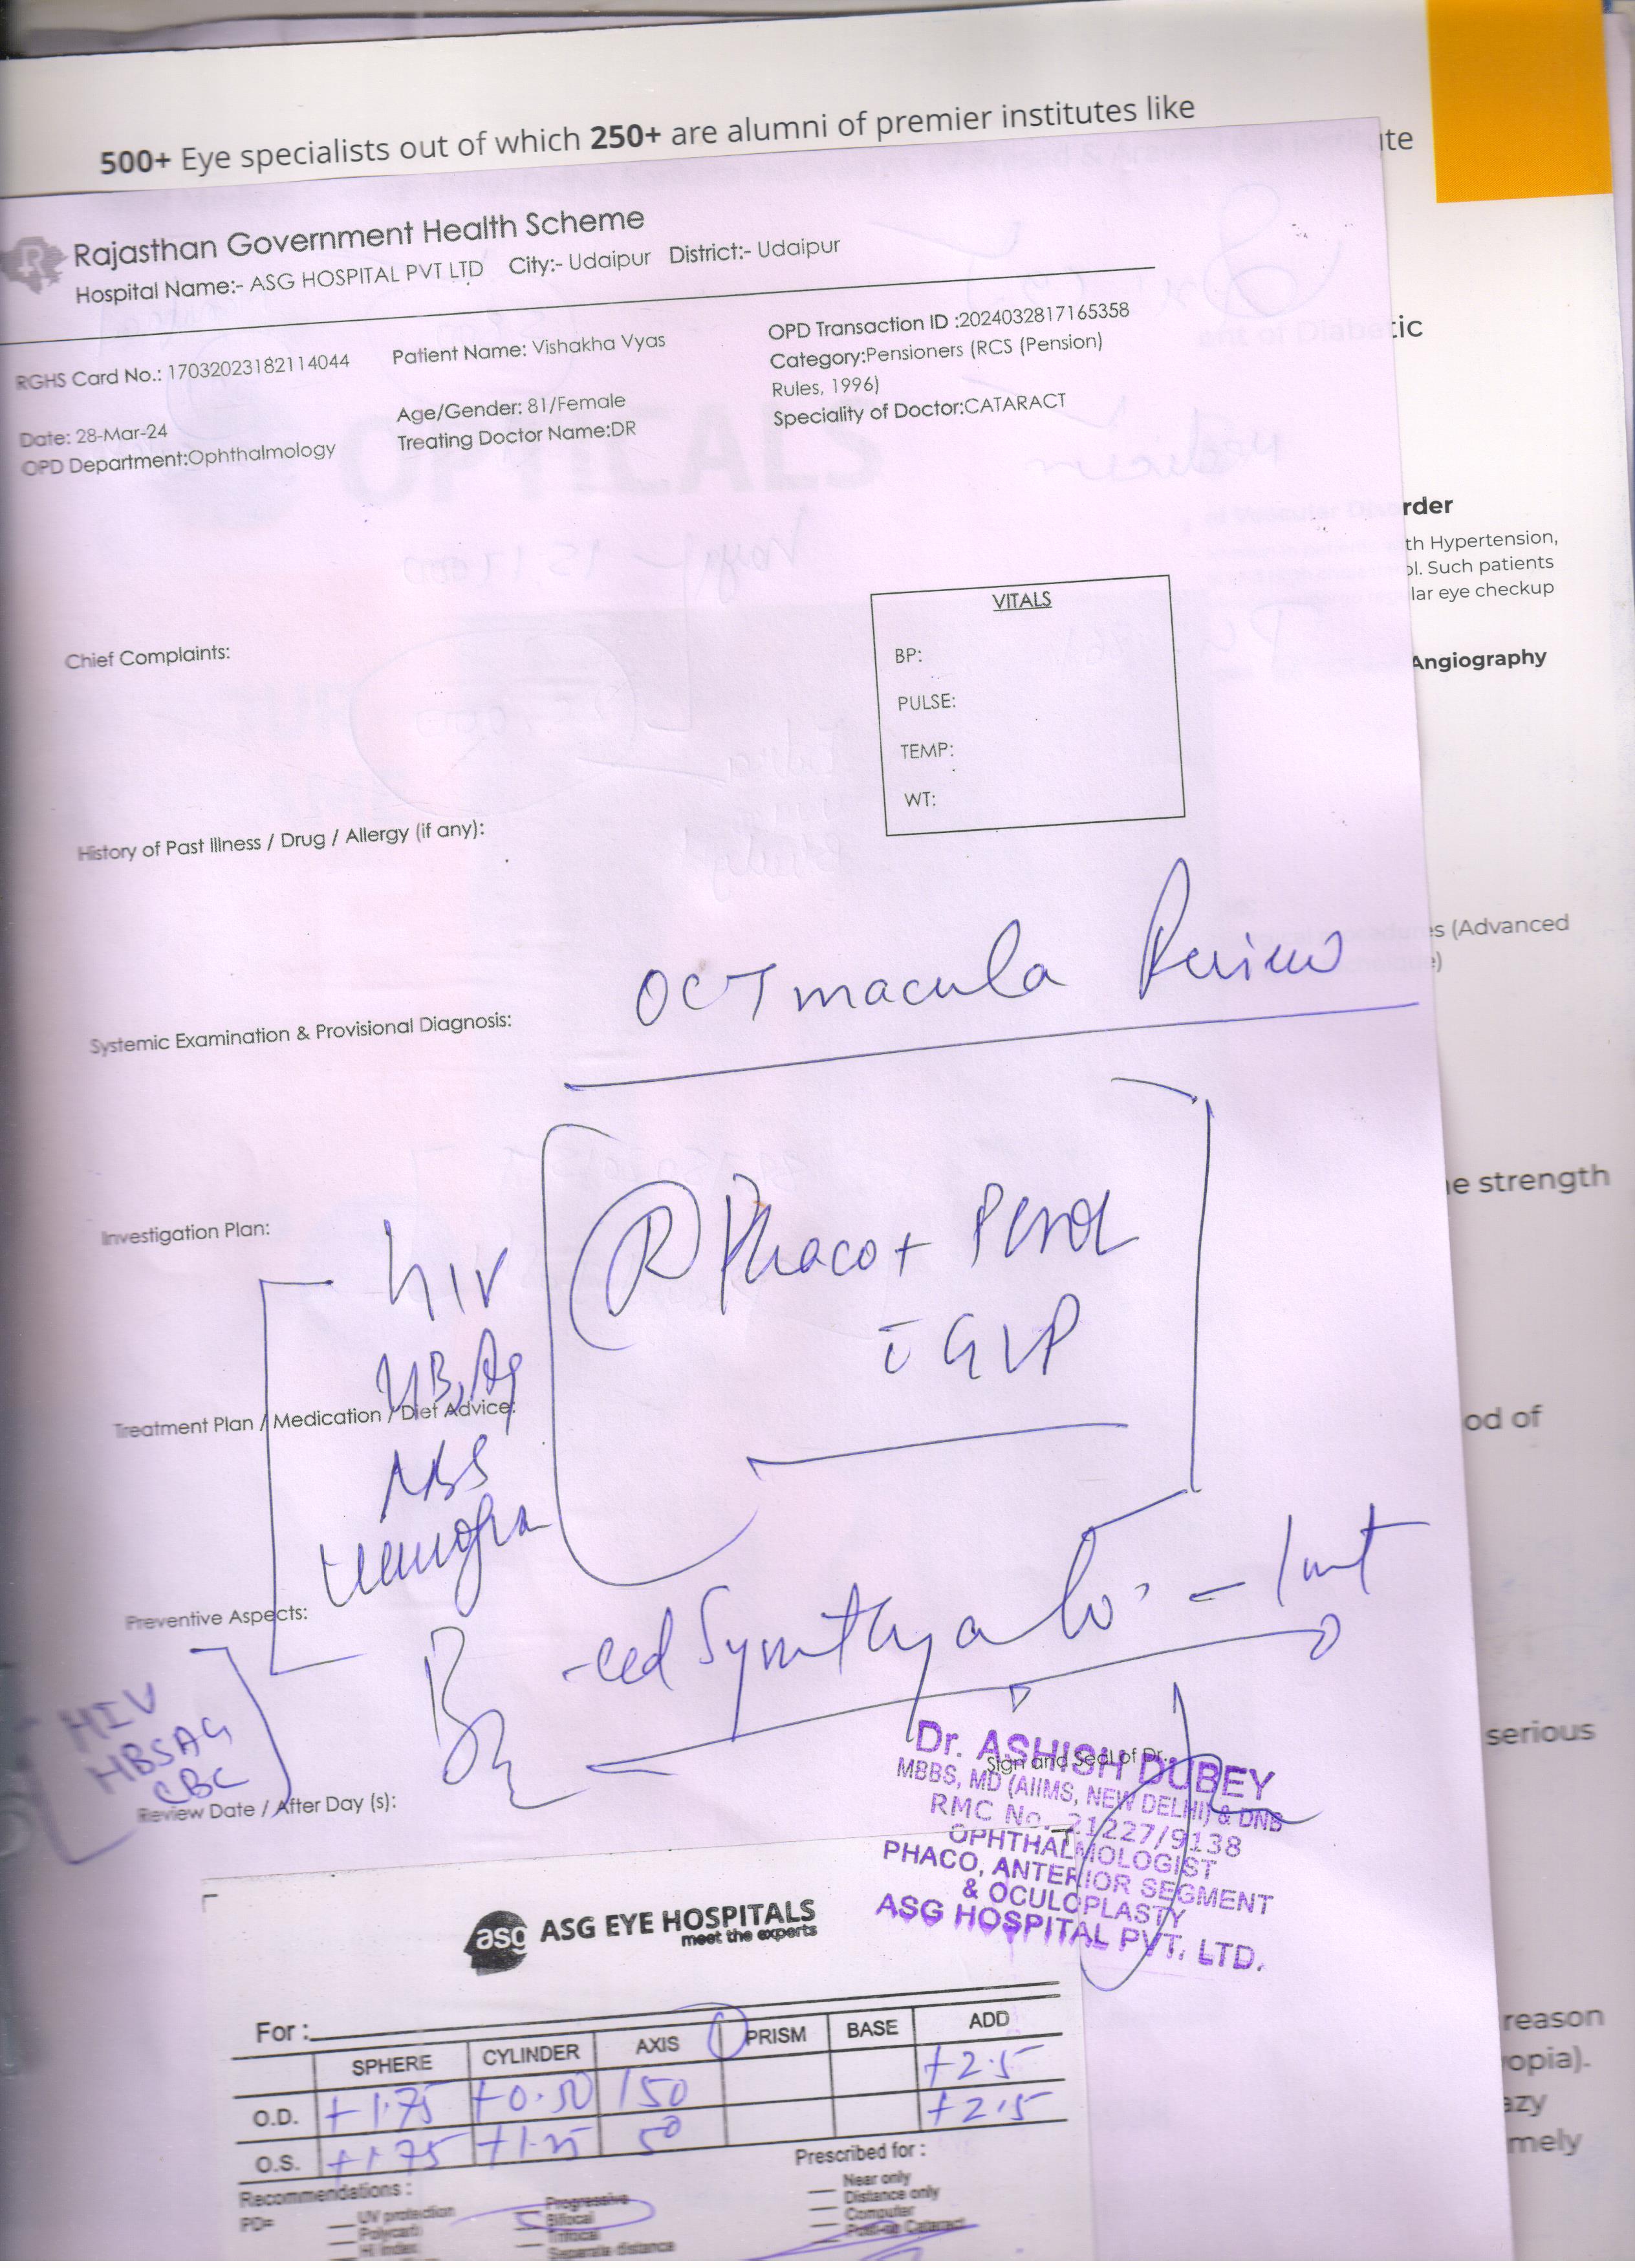 500+ Eye specialists out of which 250+ are alumni of premier institutes like
ute
Rajasthan Government Health Scheme
Hospital Name:- ASG HOSPITAL PVT LTD City:- Udaipur District:- Udaipur
RGHS Card No.: 17032023182114044
Patient Name: Vishakha Vyas
OPD Transaction ID :2024032817165358
Category:Pensioners (RCS (Pension)
Rules, 1996)
Date: 28-Mar-24
Age/Gender: 81/Female
Speciality of Doctor:CATARACT
OPD Department:Ophthalmology
Treating Doctor Name:DR
tic
rder
th Hypertension,
ol. Such patients
lar eye checkup
Angiography
VITALS
BP:
PULSE:
TEMP:
WT:
Chief Complaints:
History of Past Illness / Drug / Allergy (if any):
s (Advanced
OCT macula Review
Systemic Examination & Provisional Diagnosis:
e strength
Investigation Plan:
HIV
HBsAg
RBS
R Phaco +
GVP
Treatment Plan / Medication / Diet Advice:
od of
Preventive Aspects:
HIV
HBSAG
CBC
Review Date / After Day (s):
serious
Sign and Seal of Dr.
Dr. ASHISH DUBEY
MBBS, MD (AIIMS, NEW DELHI) & DNB
RMC No. 21227/9138
OPHTHALMOLOGIST
PHACO, ANTERIOR SEGMENT
& OCULOPLASTY
ASG HOSPITAL PVT. LTD.
asg ASG EYE HOSPITALS
meet the experts
For :
SPHERE CYLINDER AXIS PRISM BASE ADD
O.D. +1.75 +0.50 150 +2.5
O.S. +1.75 +1.25 50 +2.5
Recommendations :
PD=
UV protection
Polycarb
Hi Index
Progressive
Bifocal
Trifocal
Separate distance
Prescribed for :
Near only
Distance only
Computer
Post-op Cataract
reason
opia).
azy
mely